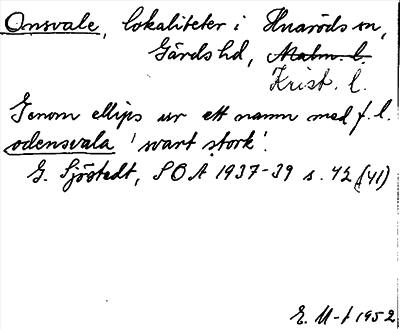 Onsvale, lokaliteter i Huaröds sn,
Gärds hd, Malm. l.
Krist. l.
Genom ellips ur ett namn med f. l.
odensvala 'svart stork'.
G. Sjöstedt, SOA 1937-39 s. 42 (41)
E. M-t 1952